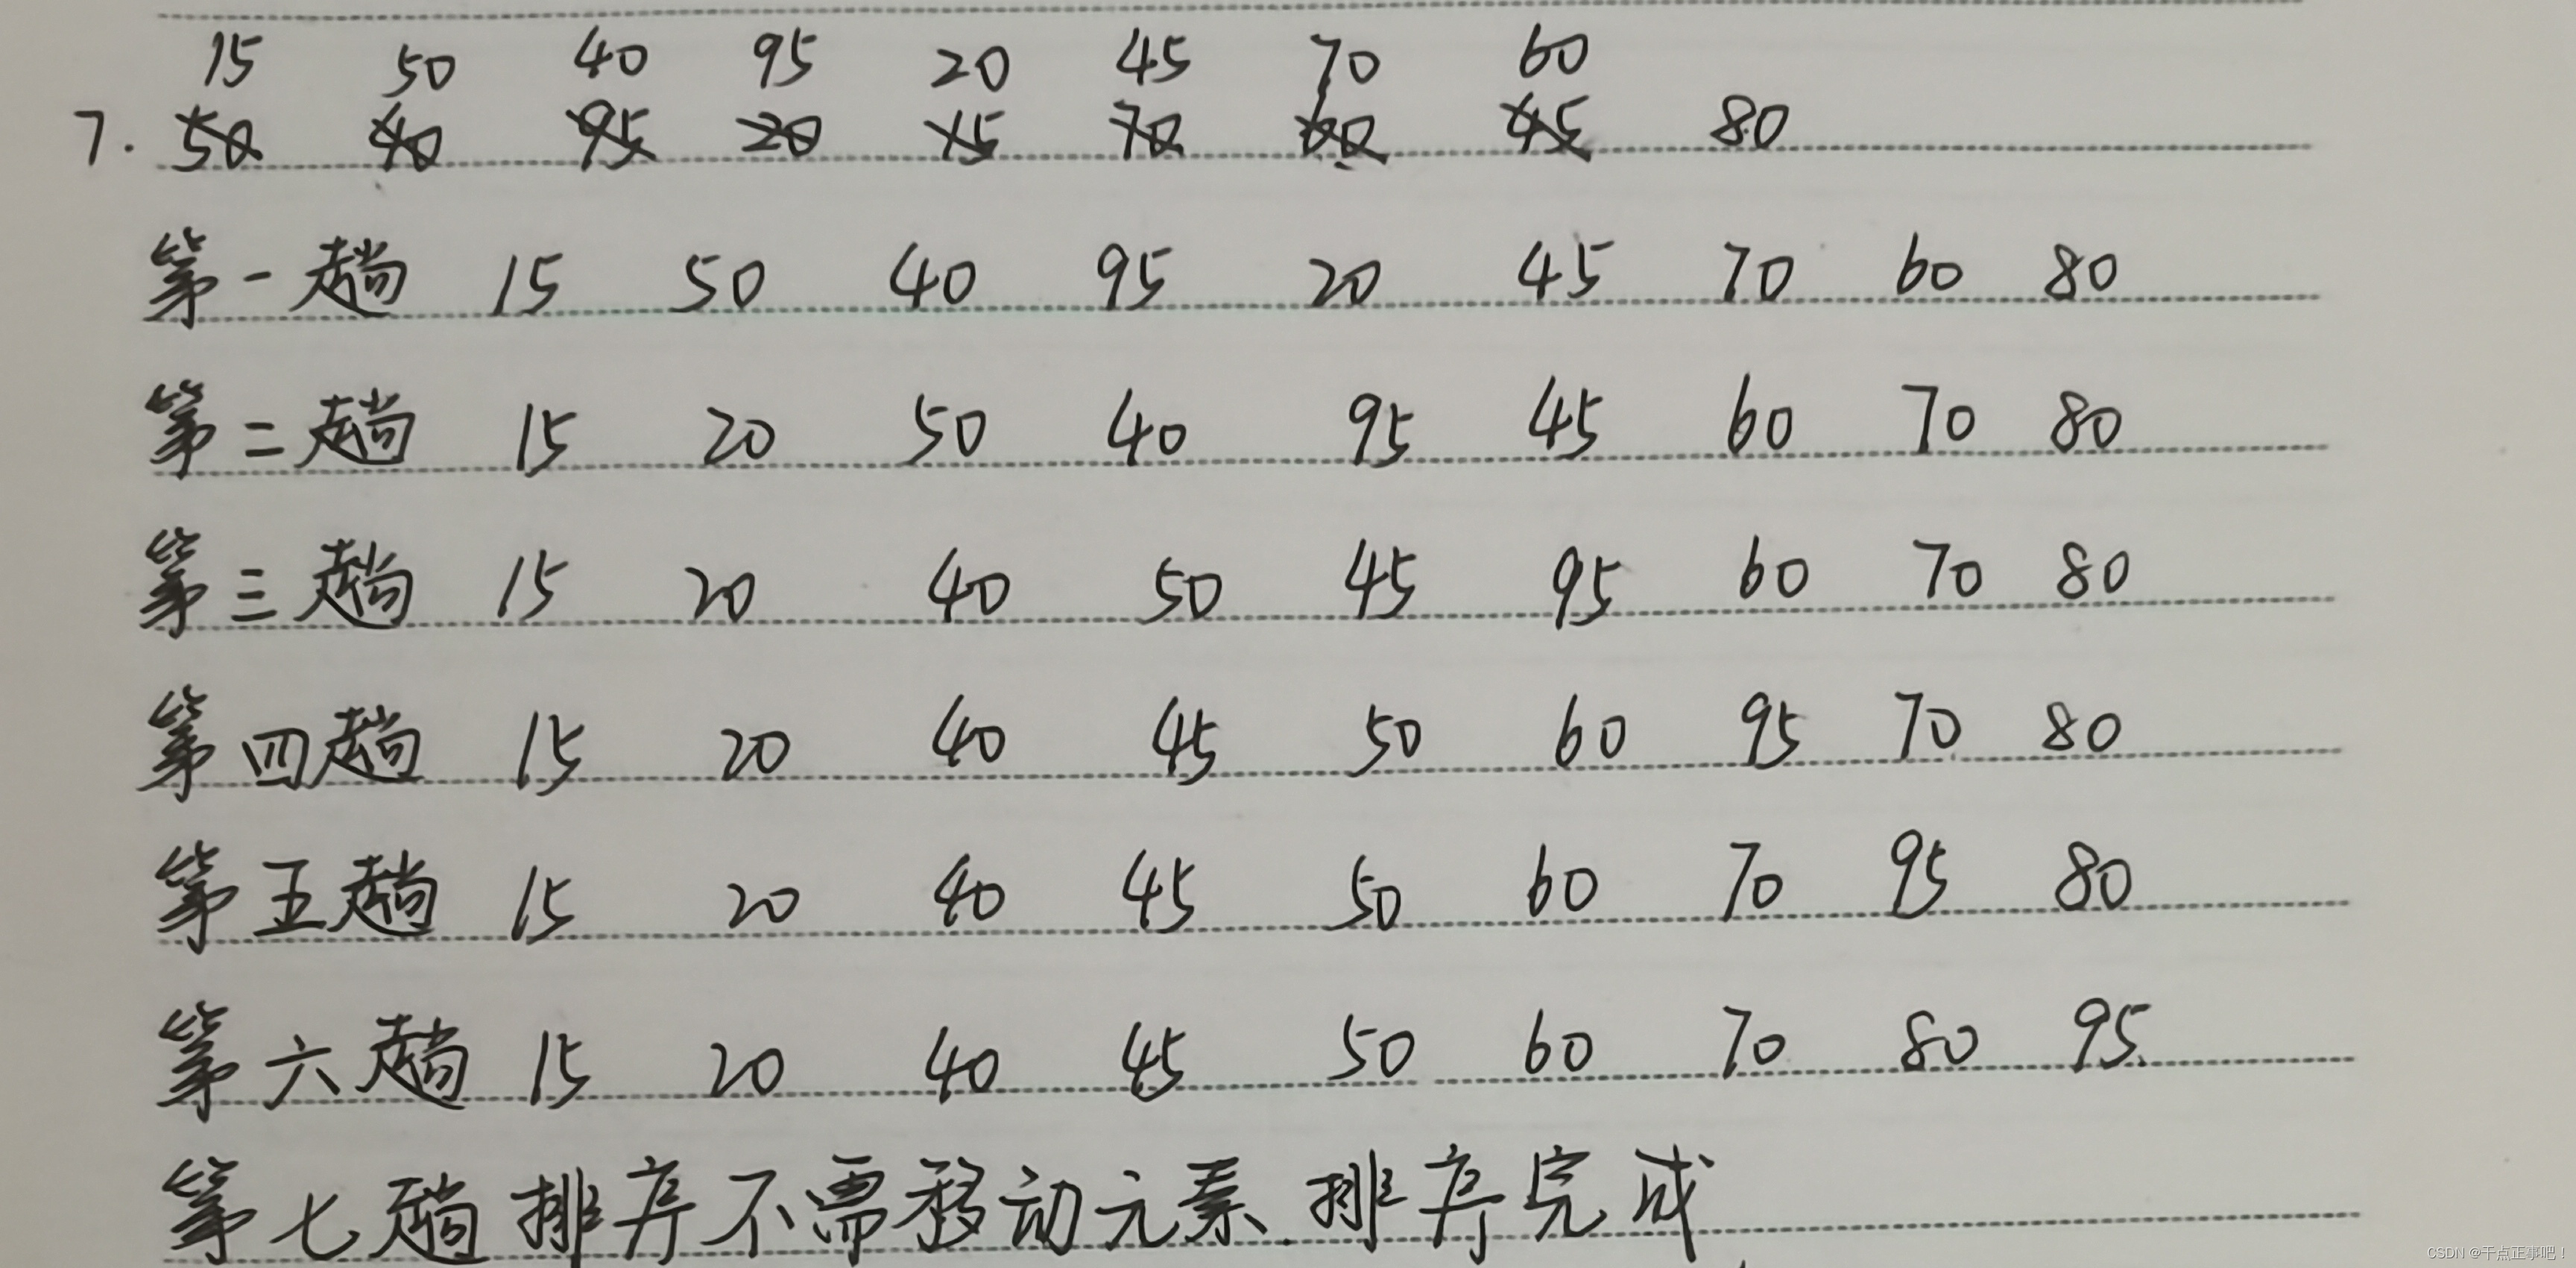 15 50 40 95 20 45 70 60
7. 50 40 95 20 15 70 60 45 80
第一趟 15 50 40 95 20 45 70 60 80
第二趟 15 20 50 40 95 45 60 70 80
第三趟 15 20 40 50 45 95 60 70 80
第四趟 15 20 40 45 50 60 95 70 80
第五趟 15 20 40 45 50 60 70 95 80
第六趟 15 20 40 45 50 60 70 80 95.
第七趟排序不需移动元素.排序完成
CSDN @干点正事吧!